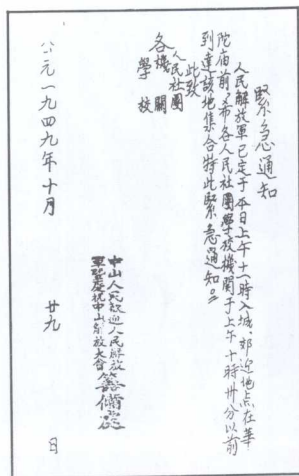 緊急通知
人民解放軍已定于本日上午十一時入城.郊迎地点在華
陀庙前.希各人民社團學校機關于上午十時卅分以前
到達該地集合特此緊急通知。
此致
人民社團
各機關
學校
中山人民歡迎人民解放
軍暨慶祝中山解放大會籌備處
公元一九四九年十月廿九日